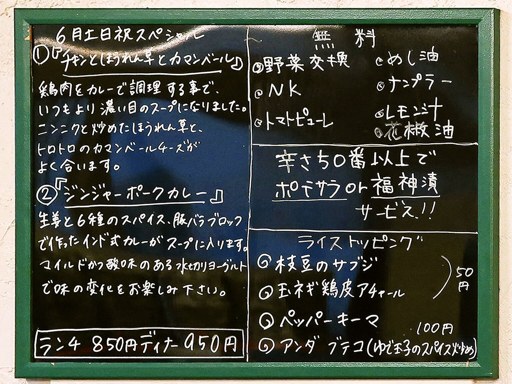 6月土日祝スペシャル
①『チキンとほうれん草とカマンベール』
鶏肉をカレーで調理する事で、
いつもより濃い目のスープになりました。
ニンニクと炒めたほうれん草と、
トロトロのカマンベールチーズが
よく合います。
②『ジンジャーポークカレー』
生姜と6種のスパイス、豚バラブロック
で作ったインド式カレーがスープに入ります。
マイルドかつ酸味のある水切りヨーグルト
で味の変化をお楽しみ下さい。
ランチ 850円 ディナー 950円
無料
野菜交換
NK
トマトピューレ
めし油
ナンプラー
レモン汁
花椒油
辛さ50番以上で
ポテサラor福神漬
サービス!!
ライストッピング
枝豆のサブジ
玉ネギ鶏皮アチャール
50円
ペッパーキーマ
100円
アンダブテコ(ゆで玉子のスパイス炒め)